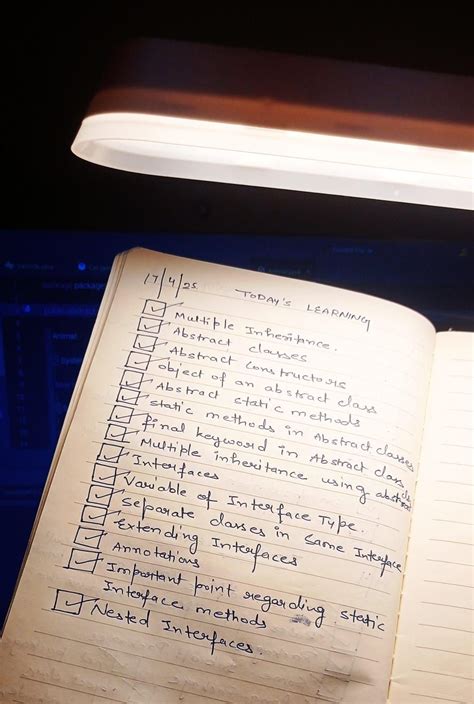 17/4/25
TODAY'S LEARNING
Multiple Inheritance.
Abstract classes
Abstract Constructors
object of an abstract class
Abstract static methods
static methods in Abstract classes
final keyword in Abstract class
Multiple inheritance using abstract
Interfaces
Variable of Interface Type.
Separate classes in same Interface
Extending Interfaces
Annotations
Important point regarding static
Interface methods
Nested Interfaces.